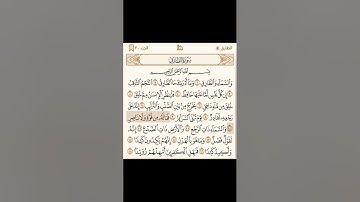 سُورَةُ الطَّارِقِ
بِسْمِ اللَّهِ الرَّحْمَٰنِ الرَّحِيمِ
وَالسَّمَاءِ وَالطَّارِقِ ۝ وَمَا أَدْرَاكَ مَا الطَّارِقُ ۝ النَّجْمُ الثَّاقِبُ
۝ إِن كُلُّ نَفْسٍ لَّمَّا عَلَيْهَا حَافِظٌ ۝ فَلْيَنظُرِ الْإِنسَانُ مِمَّ خُلِقَ ۝
خُلِقَ مِن مَّاءٍ دَافِقٍ ۝ يَخْرُجُ مِن بَيْنِ الصُّلْبِ وَالتَّرَائِبِ ۝ إِنَّهُ عَلَىٰ
رَجْعِهِ لَقَادِرٌ ۝ يَوْمَ تُبْلَى السَّرَائِرُ ۝ فَمَا لَهُ مِن قُوَّةٍ وَلَا نَاصِرٍ
۝ وَالسَّمَاءِ ذَاتِ الرَّجْعِ ۝ وَالْأَرْضِ ذَاتِ الصَّدْعِ ۝ إِنَّهُ
لَقَوْلٌ فَصْلٌ ۝ وَمَا هُوَ بِالْهَزْلِ ۝ إِنَّهُمْ يَكِيدُونَ كَيْدًا ۝
وَأَكِيدُ كَيْدًا ۝ فَمَهِّلِ الْكَافِرِينَ أَمْهِلْهُمْ رُوَيْدًا ۝